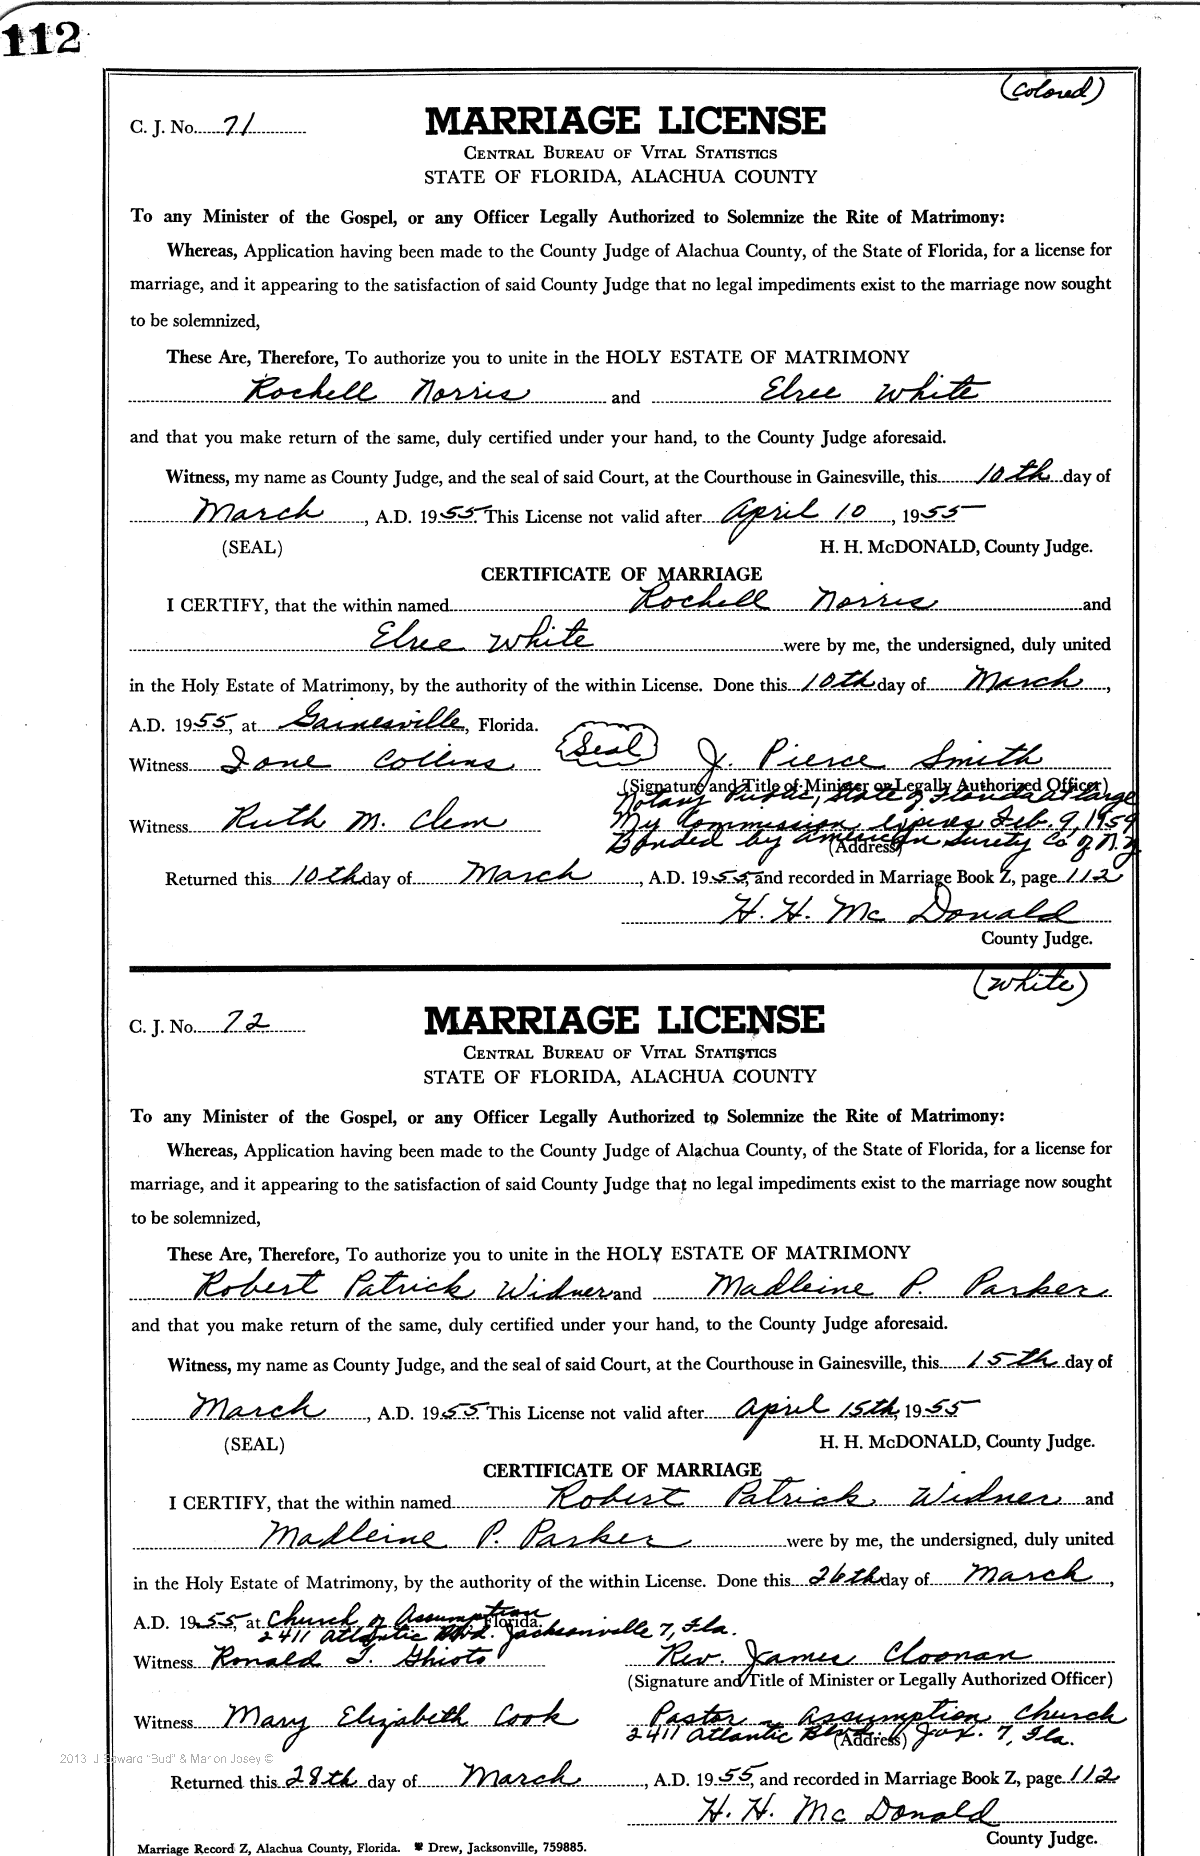 112
(Colored)
C. J. No. 71
MARRIAGE LICENSE
CENTRAL BUREAU OF VITAL STATISTICS
STATE OF FLORIDA, ALACHUA COUNTY
To any Minister of the Gospel, or any Officer Legally Authorized to Solemnize the Rite of Matrimony:
Whereas, Application having been made to the County Judge of Alachua County, of the State of Florida, for a license for
marriage, and it appearing to the satisfaction of said County Judge that no legal impediments exist to the marriage now sought
to be solemnized,
These Are, Therefore, To authorize you to unite in the HOLY ESTATE OF MATRIMONY
Rochell Norris and Elree White
and that you make return of the same, duly certified under your hand, to the County Judge aforesaid.
Witness, my name as County Judge, and the seal of said Court, at the Courthouse in Gainesville, this 10th day of
March, A.D. 1955. This License not valid after April 10, 1955
(SEAL) H. H. McDONALD, County Judge.
CERTIFICATE OF MARRIAGE
I CERTIFY, that the within named Rochell Norris and
Elree White were by me, the undersigned, duly united
in the Holy Estate of Matrimony, by the authority of the within License. Done this 10th day of March,
A.D. 1955, at Gainesville, Florida.
Witness Ione Collins Seal J. Pierce Smith
(Signature and Title of Minister or Legally Authorized Officer)
Notary Public, State of Florida at large
Witness Ruth M. Clem My Commission expires Feb. 9, 1959
Bonded by American Surety Co of N.Y.
(Address)
Returned this 10th day of March, A.D. 1955, and recorded in Marriage Book Z, page 112
H. H. Mc Donald
County Judge.
(White)
C. J. No. 72
MARRIAGE LICENSE
CENTRAL BUREAU OF VITAL STATISTICS
STATE OF FLORIDA, ALACHUA COUNTY
To any Minister of the Gospel, or any Officer Legally Authorized to Solemnize the Rite of Matrimony:
Whereas, Application having been made to the County Judge of Alachua County, of the State of Florida, for a license for
marriage, and it appearing to the satisfaction of said County Judge that no legal impediments exist to the marriage now sought
to be solemnized,
These Are, Therefore, To authorize you to unite in the HOLY ESTATE OF MATRIMONY
Robert Patrick Widner and Madleine P. Parker
and that you make return of the same, duly certified under your hand, to the County Judge aforesaid.
Witness, my name as County Judge, and the seal of said Court, at the Courthouse in Gainesville, this 15th day of
March, A.D. 1955. This License not valid after April 15th, 1955
(SEAL) H. H. McDONALD, County Judge.
CERTIFICATE OF MARRIAGE
I CERTIFY, that the within named Robert Patrick Widner and
Madleine P. Parker were by me, the undersigned, duly united
in the Holy Estate of Matrimony, by the authority of the within License. Done this 26th day of March,
A.D. 1955, at Church of Assumption Florida.
2411 Atlantic Blvd. Jacksonville 7, Fla.
Witness Ronald T. Ghioto Rev. James Cloonan
(Signature and Title of Minister or Legally Authorized Officer)
Witness Mary Elizabeth Cook Pastor - Assumption Church
2411 Atlantic Blvd. Jax. 7, Fla.
(Address)
2013 J Edward "Bud" & Marion Josey ©
Returned this 28th day of March, A.D. 1955, and recorded in Marriage Book Z, page 112
H. H. Mc Donald
County Judge.
Marriage Record Z, Alachua County, Florida. Drew, Jacksonville, 759885.